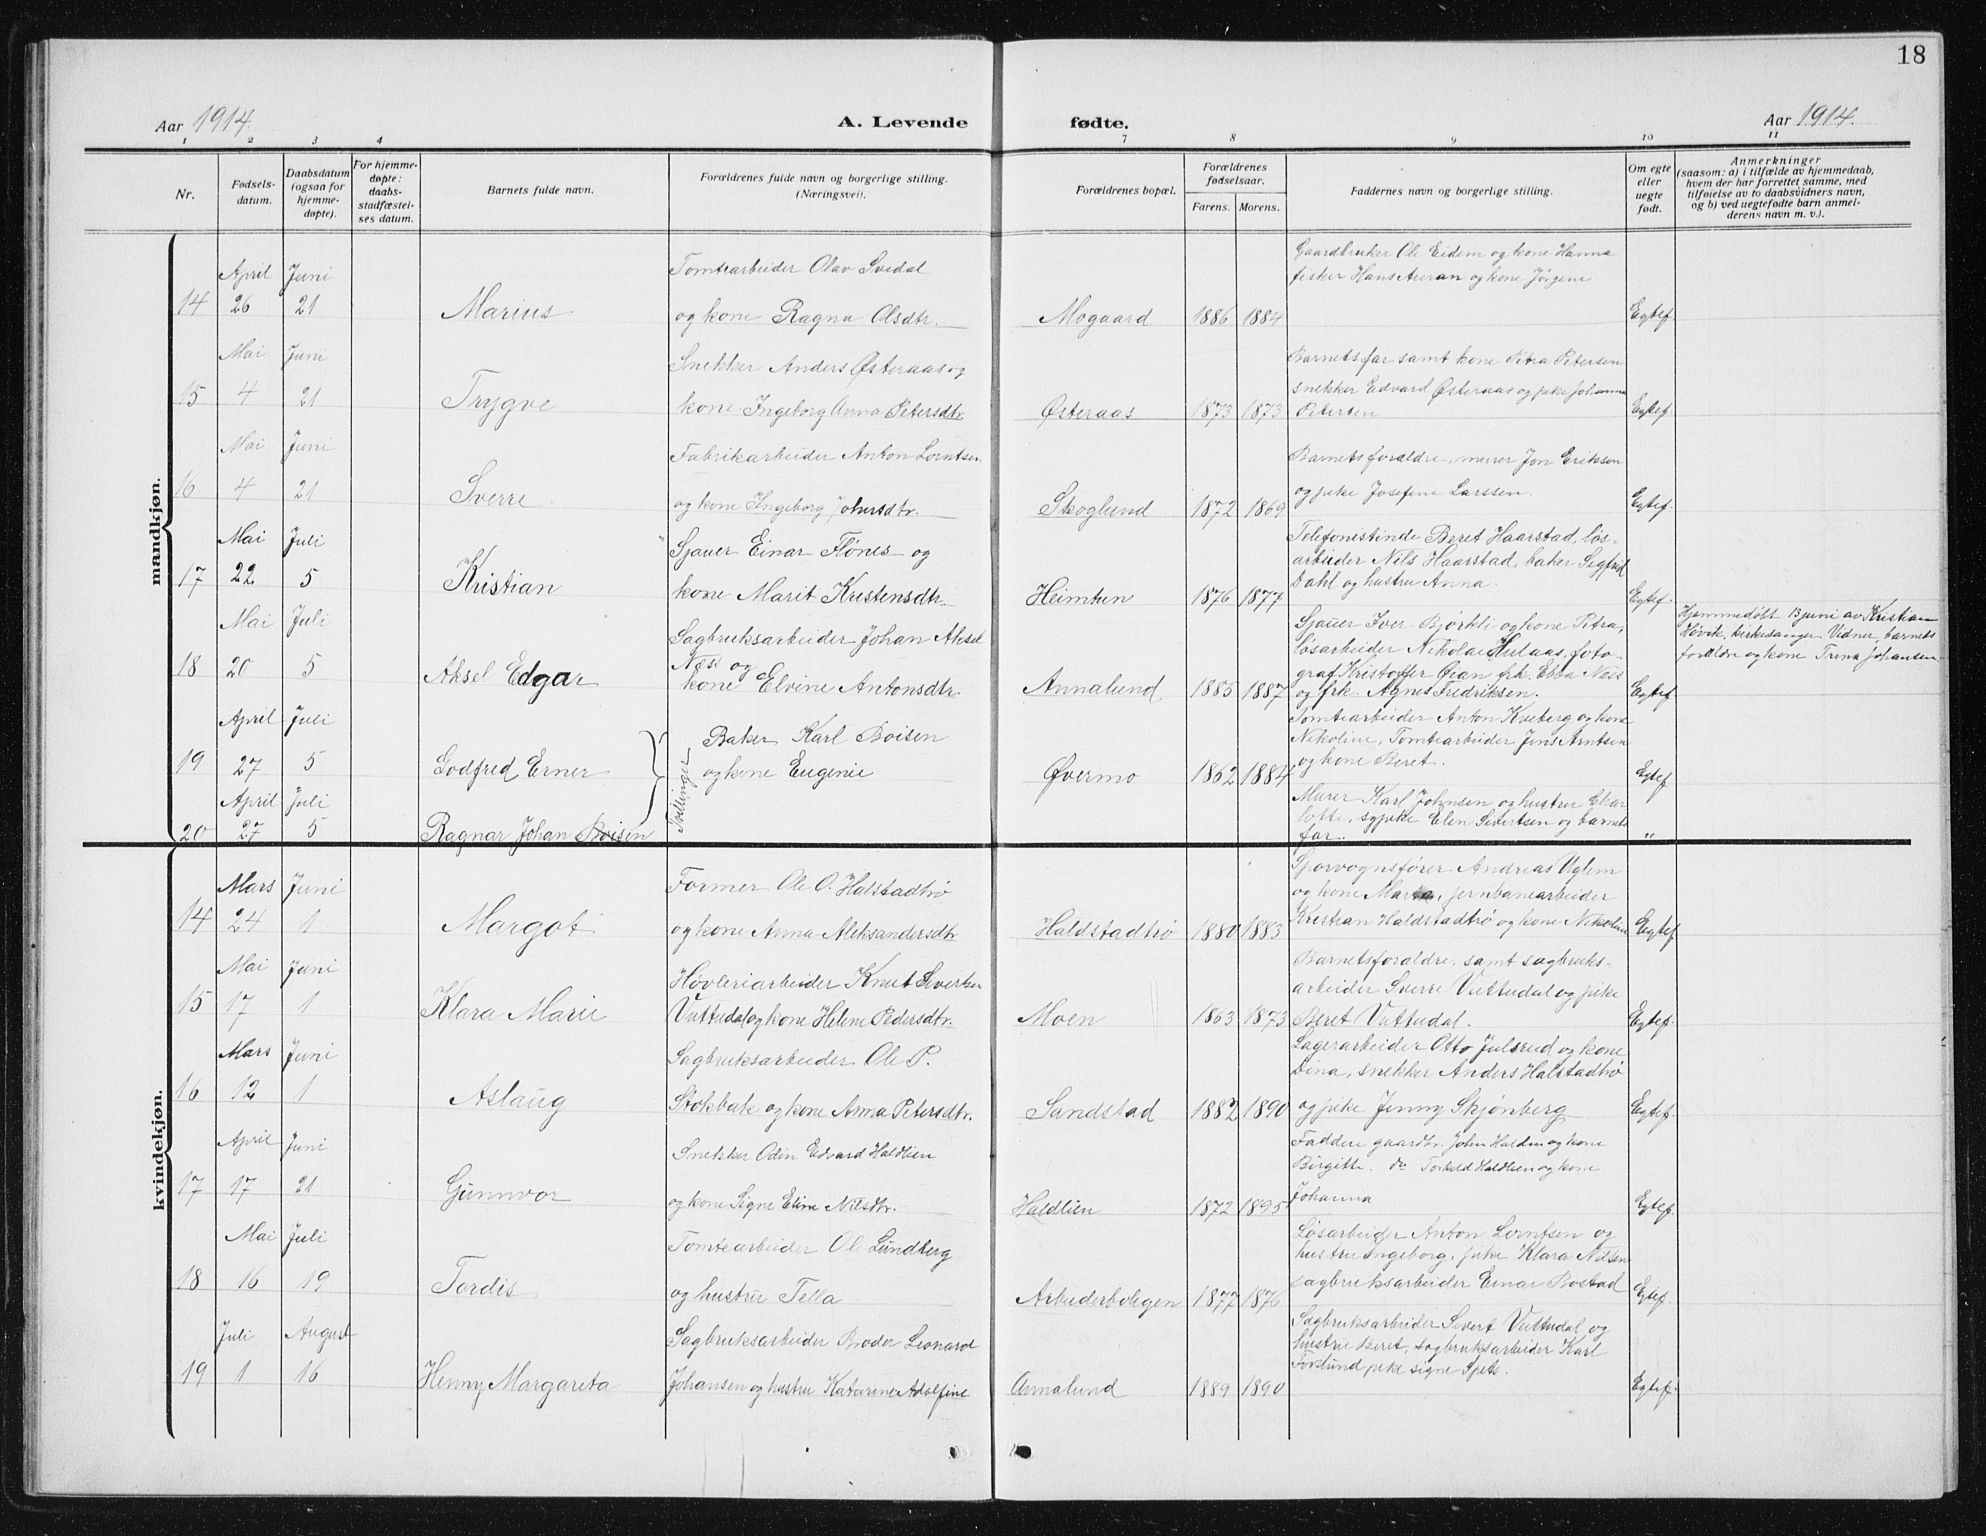 18
Aar 1914. A. Levende fødte. Aar 1914.
1 2 3 4 7 8 9 10 11
Nr.
Fødsels-
datum.
Daabsdatum
(ogsaa for
hjemme-
døpte).
For hjemme-
døpte:
daabs-
stadfæstel-
ses datum.
Barnets fulde navn.
Forældrenes fulde navn og borgerlige stilling.
(Næringsvei).
Forældrenes bopæl.
Forældrenes
fødselsaar.
Farens. Morens.
Faddernes navn og borgerlige stilling.
Om egte
eller
uegte
født.
Anmerkninger
(saasom: a) i tilfælde av hjemmedaab,
hvem der har forrettet samme, med
tilføielse av to daabsvidners navn,
og b) ved uegtefødte barn anmel-
derens navn m. v.).
mandkjøn.
April Juni
14 26 21 Marius
Tomtearbeider Olav Svedal
og kone Ragna Olsdtr.
Mogaard 1886 1884
Gaardbruker Ole Eidem og kone Hanna
fisker Hans Aunan og kone Jørgine
Egtef.
Mai Juni
15 4 21 Trygve
Snekker Anders Østeraas og
kone Ingeborg Anna Petersdtr
Østeraas 1873 1873
Barnets far samt kone Petra Petersen
snekker Edvard Østeraas og pike Johanna
Petersen
Egtef
Mai Juni
16 4 21 Sverre
Fabrikarbeider Anton Lorntsen
og kone Ingeborg Johnsdtr.
Skoglund 1872 1869
Barnets foraldre, murer Jon Erikson
og pike Josefine Larssen.
Egtef.
Mai Juli
17 22 5 Kristian
Sjauer Einar Flönes og
kone Marit Kristensdtr.
Heimtun 1876 1877
Telefonistinde Beret Haarstad, løs-
arbeider Nils Haarstad, baker Sigfrid
Dahl og hustru Anna.
Egtef.
Mai Juli
18 20 5 Aksel Edgar
Sagbruksarbeider Johan Aksel
Næss og
kone Elvine Antonsdtr
Annalund 1885 1887
Sjauer Iver Bjørkli og kone Petra,
løsarbeider Nikolai Hulaas, foto-
graf Kristoffer Øian frk. Ebba Næss
og frk. Agnes Fredriksen.
Egtef
Hjemmedøbt 13 juni av Kristian
Høvik, kirkesanger. Vidner, barnets
forældre og kone Trina Johansen
April Juli
19 27 5 Godfred Erner
Tvillinger
Baker Karl Boisen
og kone Eugenie
Øvermo 1862 1884
Tomtearbeider Anton Kveberg og kone
Nikoline, Tomtearbeider Jens Arntsen
og kone Beret.
Egtef
April Juli
20 27 5 Ragnar Johan Boisen
Murer Karl Johnsen og hustru Char
lotte, sypike Elen Sivertsen og barnets
far.
"
kvindekjøn.
Mars Juni
14 24 1 Margot
Former Ole O. Halstadtrø
og kone Anna Aleksandersdtr
Haldstadtrø 1880 1883
Sporvognsfører Andreas Uglem
og kone Marta, jernbanearbeider
Kristian Haldstadtrø og kone Nikoline
Egtef
Mai Juni
15 17 1 Klara Marie
Høvleriarbeider Knut Sivertsen
Vuttudal og kone Helene Pedersdtr.
Moen 1863 1873
Barnets foraldre, samt sagbruks-
arbeider Sverre Vuttudal og pike
Beret Vuttudal.
Egtef.
Mars Juni
16 12 1 Aslaug
Sagbruksarbeider Ole P.
Stokbak og kone Anna Petersdtr.
Sandstad 1882 1890
Lagerarbeider Otto Julsrud og kone
Dina, snekker Anders Halstadtrø
og pike Jenny Skjønberg
Egtef
April Juni
17 17 21 Gunnvor
Snekker Odin Edvard Haldlien
og kone Signe Eline Nilsdtr.
Haldlien 1872 1895
Faddere gaardbr. John Halden og kone
Birgitte. do Torkeld Haldlien og kone
Johanna
Egtef.
Mai Juli
18 16 19 Tordis
Tomtearbeider Ole Lundberg
og hustru Tella
Arbeiderboligen 1877 1876
Løsarbeider Anton Lorntsen og
hustru Ingeborg, pike Klara Nilsen
sagbruksarbeider Einar Bostad
Egtef.
Juli August
19 1 16 Henny Margareta
Sagbruksarbeider Broder Leonard
Johansen og hustru Katarina Adolfine
Annalund 1889 1890
Sagbruksarbeider Sivert Vuttudal og
hustru Beret, sagbruksarbeider Karl
Forslund pike signe Spets.
Egtef.